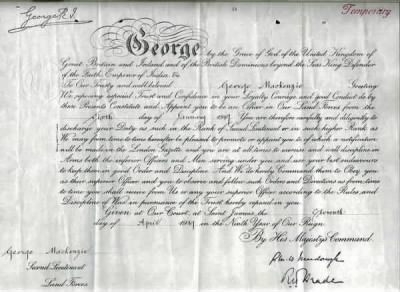 George R.I.
Temporary
George by the Grace of God of the United Kingdom of
Great Britain and Ireland and of the British Dominions beyond the Seas King, Defender
of the Faith, Emperor of India, &c.
To Our Trusty and well beloved George Mackenzie Greeting
We, reposing especial Trust and Confidence in your Loyalty, Courage, and good Conduct, do by
these Presents Constitute and Appoint you to be an Officer in Our Land Forces from the
day of January You are therefore carefully and diligently to
discharge your Duty as such in the Rank of Second Lieutenant or in such higher Rank as
We may from time to time hereafter be pleased to promote or appoint you to of which a notification
will be made in the London Gazette and you are at all times to exercise and well discipline in
Arms both the inferior Officers and Men serving under you and use your best endeavours
to keep them in good Order and Discipline. And We do hereby Command them to Obey you
as their superior Officer and you to observe and follow such Orders and Directions as from time
to time you shall receive from Us or any your superior Officer according to the Rules and
Discipline of War in pursuance of the Trust hereby reposed in you.
Given at Our Court, at Saint James's, the Eleventh
day of April in the Ninth Year of Our Reign
By His Majesty's Command.
George Mackenzie
Second Lieutenant
Land Forces